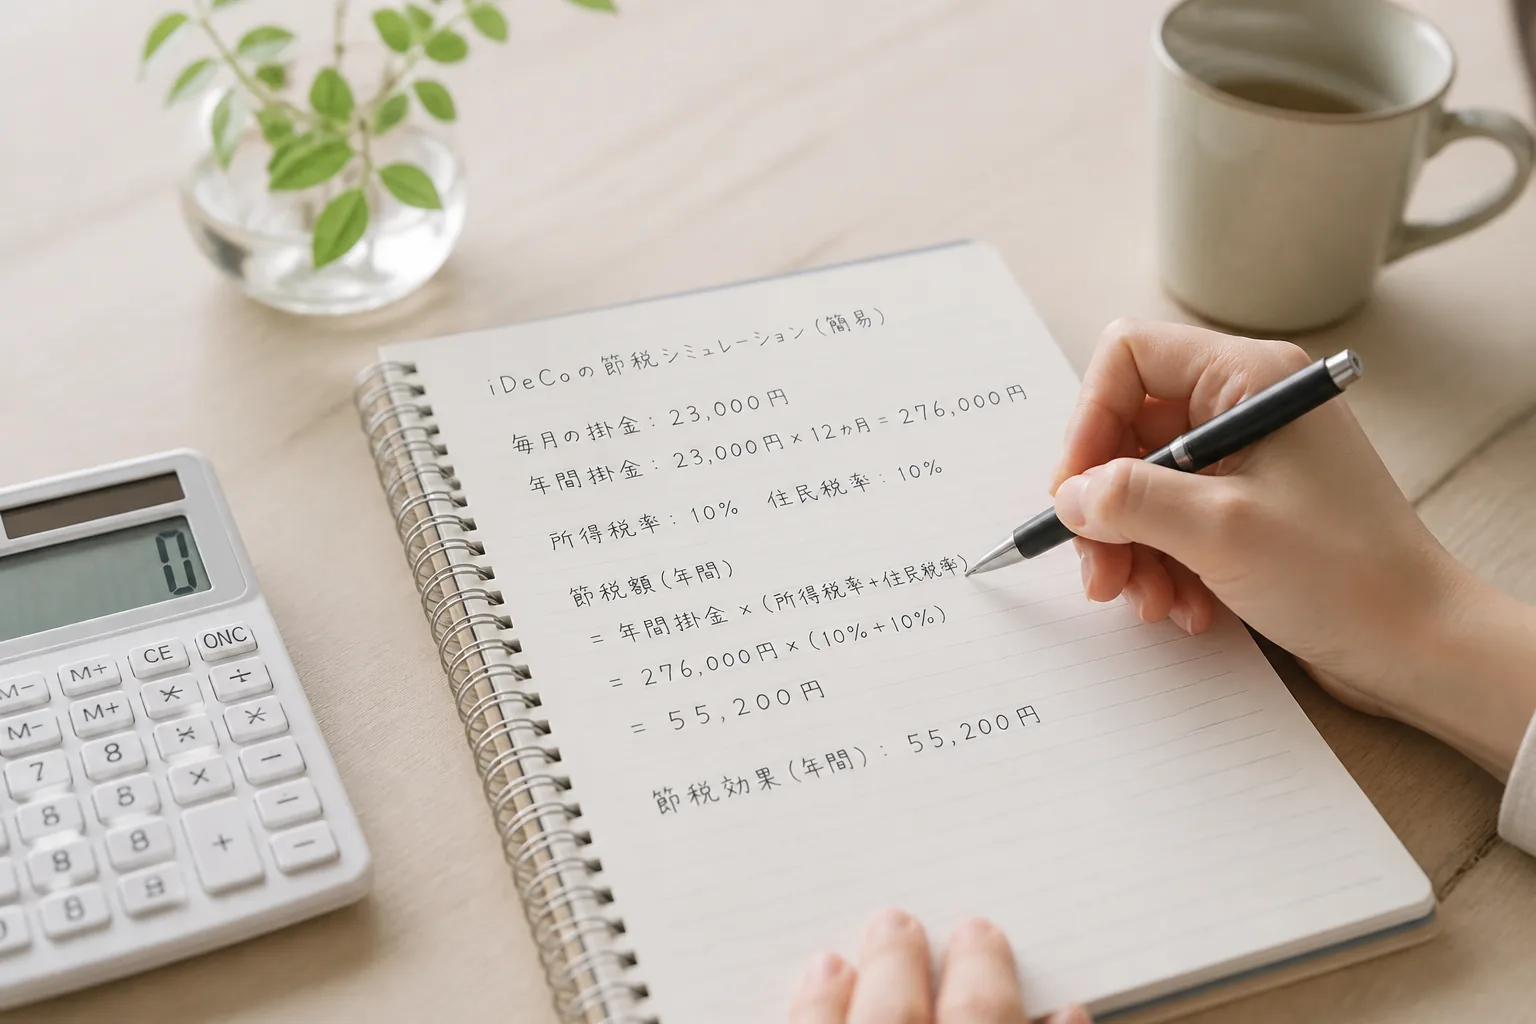 iDeCoの節税シミュレーション(簡易)
毎月の掛金：23,000円
年間掛金：23,000円×12ヵ月＝276,000円
所得税率：10%　住民税率：10%
節税額(年間)
＝年間掛金×(所得税率＋住民税率)
＝276,000円×(10%＋10%)
＝55,200円
節税効果(年間)：55,200円
0
M− M+ CE ONC
M− M+
7 8
8 8
8 8
8 8